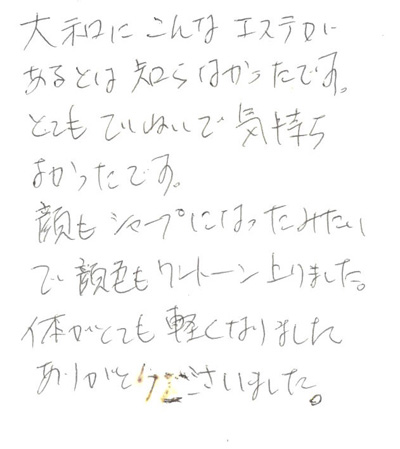 大和にこんなエステが
あるとは知らなかったです。
とてもていねいで気持ち
よかったです。
顔もシャープになったみたい
で顔色もワントーン上りました。
体がとても軽くなりました
ありがとうございました。